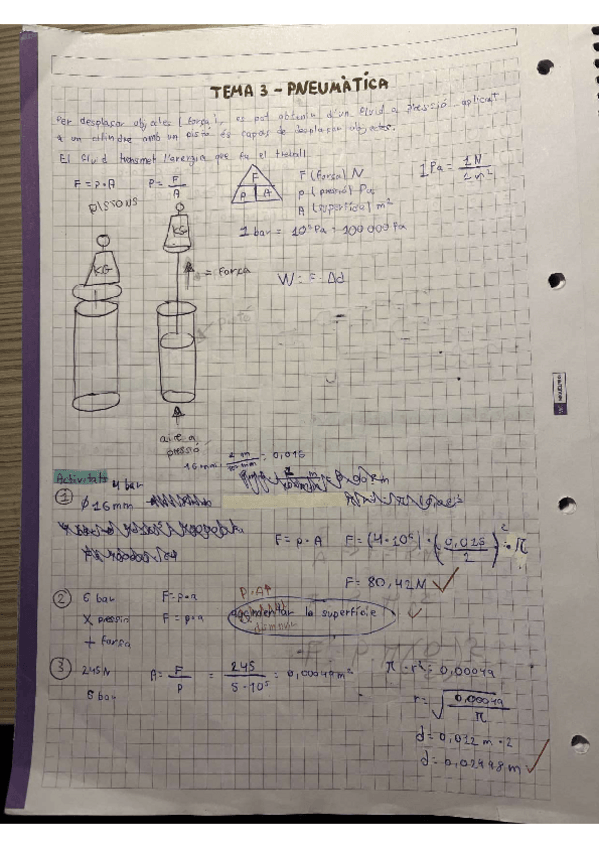 TEMA 3 - PNEUMÀTICA
Per desplaçar objectes (força), es pot obtenir d'un fluid a pressió aplicat
a un cilindre amb un pistó és capaç de desplaçar objectes.
El fluid transmet l'energia que fa el treball
F = p·A
P = F/A
F
P A
F (força) N
p (pressió) Pas
A (superfície) m²
1 Pa = 1N / 1 m²
1 bar = 10⁵ Pa = 100 000 Pa
PISTONS
KG
KG
= Força
W = F · Δd
pistó
aire a
pressió
Activitats
4 bar
= 0,016
1 Ø 16mm
F = p·A F = (4·10⁵) · (0,016/2)² · π
F = 80,42N
2 6 bar F=p·a P·A↑
x pressió F = p·a augmentar la superfície
+ força
disminuir
3 245N A = F/P = 245/5·10⁵ = 0,00049m² π · r² = 0,00049
5 bar
r = √0,00049/π
d = 0,012 m · 2
d = 0,02498 m